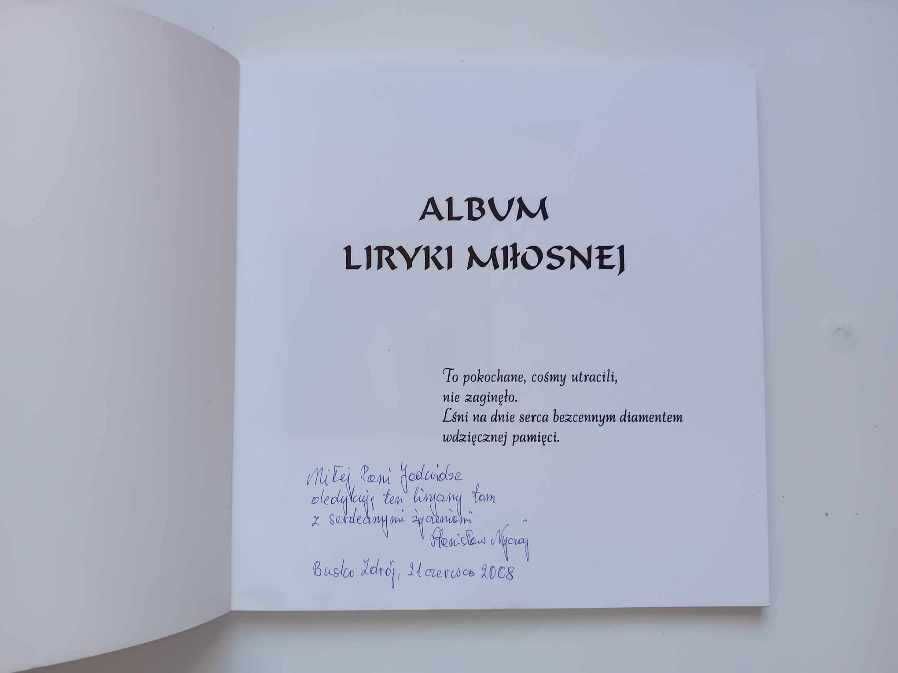 ALBUM
LIRYKI MIŁOSNEJ
To pokochane, cośmy utracili,
nie zaginęło.
Lśni na dnie serca bezcennym diamentem
wdzięcznej pamięci.
Miłej Pani Jadwidze
dedykuję ten liryczny tom
z serdecznymi życzeniami
Stanisław Nyczaj
Busko Zdrój, 21 czerwca 2008